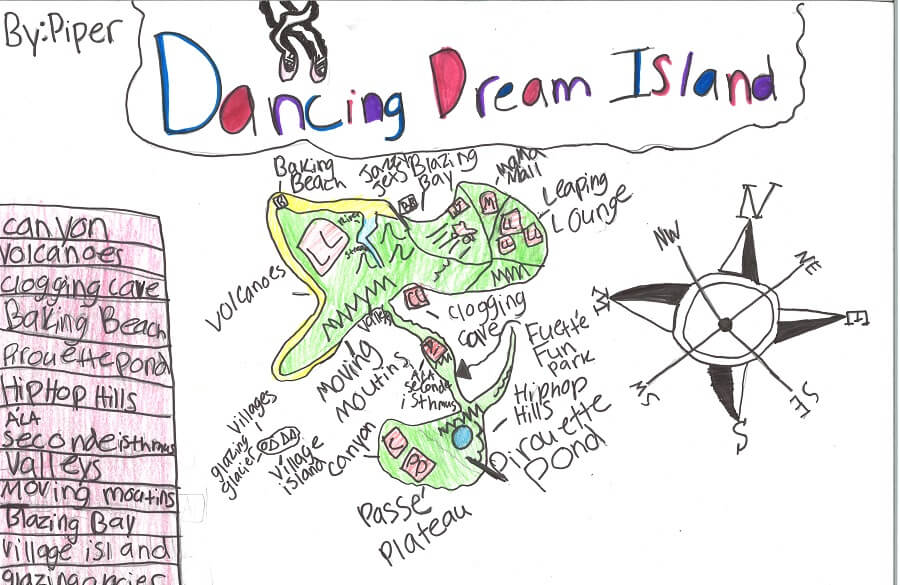 By:Piper
Dancing Dream Island
Baking
Beach
Blazing
Bay
BB
Mall
M
Leaping
Lounge
L
L
L
River
volcanoes
CC
clogging
cave
valleys
moving
moutins
A'LA
seconde
isthmus
Fuette
Fun
park
HipHop
Hills
Pirouette
Pond
canyon
C
PP
Passé
Plateau
villages
glazing
glacier
village
island
N
NE
E
SE
S
NW
canyon
volcanoes
clogging cave
Baking Beach
Pirouette pond
HipHop Hills
A'LA
seconde isthmus
valleys
moving moutins
Blazing Bay
village island